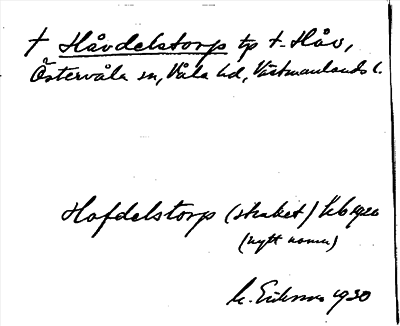 † Håvdelstorp tp t. Håv,
Östervåla sn, Våla hd, Västmanlands l.
Hofdelstorp (straket) Kb 1920
(nytt namn)
M. Eriksson 1930